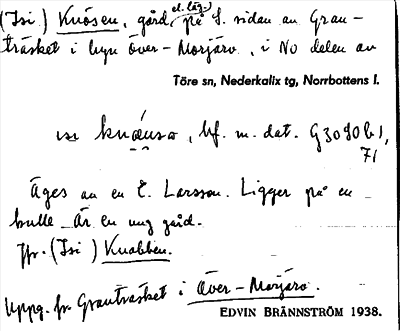 (Isi) Knösen, gård el. läg. på S. sidan av Gran-
träsket i byn Över-Morjärv, i NO delen av
Töre sn, Nederkalix tg, Norrbottens l.
bf. m. dat. G3090b1,
71
Äges av en E. Larsson. Ligger på en
kulle. Är en ung gård.
Jfr. (Isi) Knabben.
Uppg. fr. Granträsket i Över-Morjärv.
EDVIN BRÄNNSTRÖM 1938.